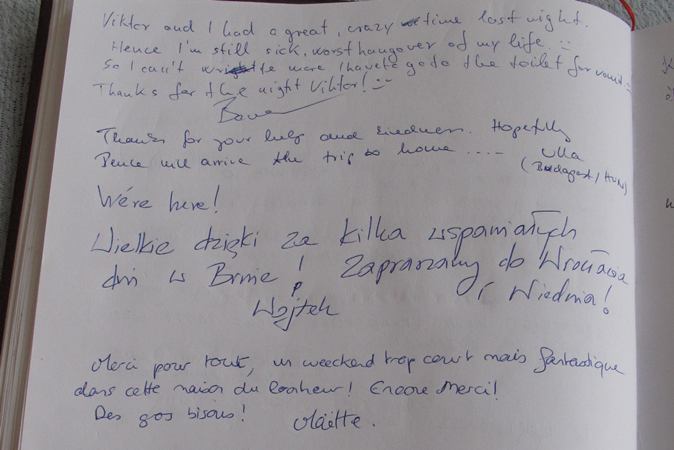 Viktor and I had a great, crazy time last night.
Hence I'm still sick, worst hangover of my life. :-)
So I can't write more I have to go to the toilet for vomit :-)
Thanks for the night Viktor! :-)
Thanks for your help and kindness. Hopefully
Bence will arrive the trip to home ..... Ulla
(Budapest / Hun)
We're here!
Wielkie dzięki za kilka wspaniałych
dni w Brnie! Zapraszamy do Wrocławia
i Wiednia!
Wojtek
Merci pour tout, un weeckend trop court mais fantastique
dans cette maison du bonheur! Encore Merci!
Des gros bisous! Maïtte.